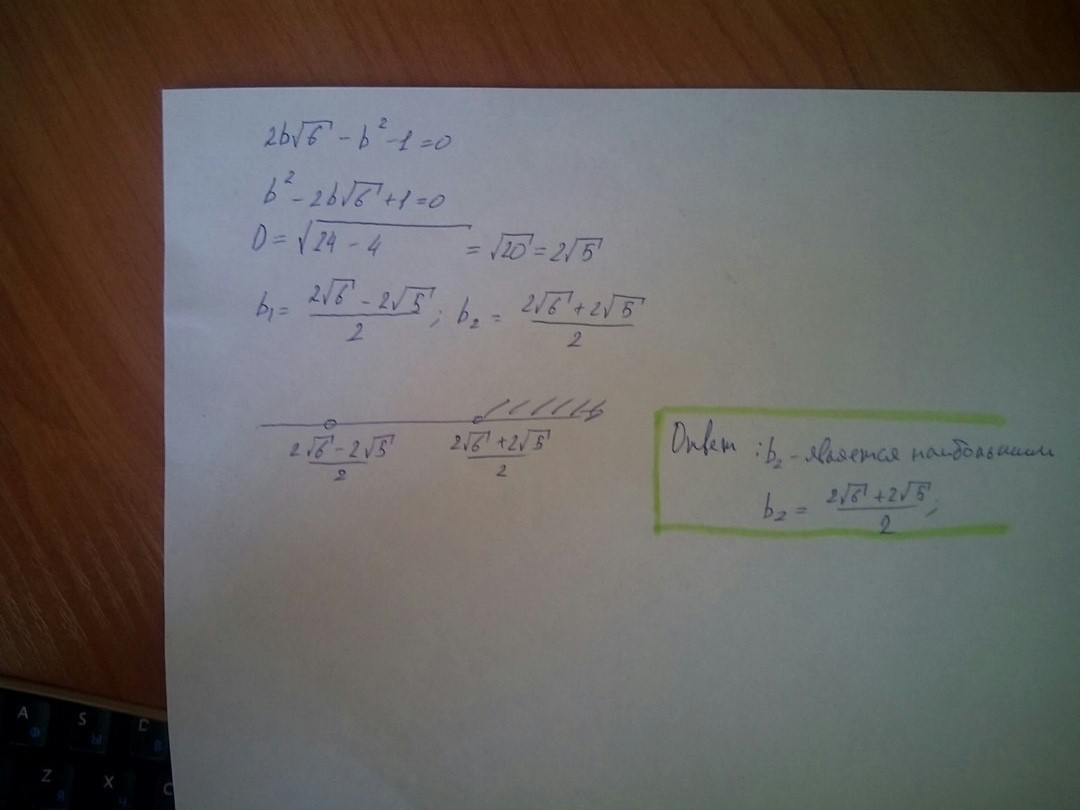 2b√6 - b² - 1 = 0
b² - 2b√6 + 1 = 0
D = √(24 - 4) = √20 = 2√5
b₁ = (2√6 - 2√5)/2 ; b₂ = (2√6 + 2√5)/2
(2√6 - 2√5)/2 (2√6 + 2√5)/2
Ответ : b₂ - является наибольшим
b₂ = (2√6 + 2√5)/2 ;
A S D
Ф Ы В
Z X C
Я Ч